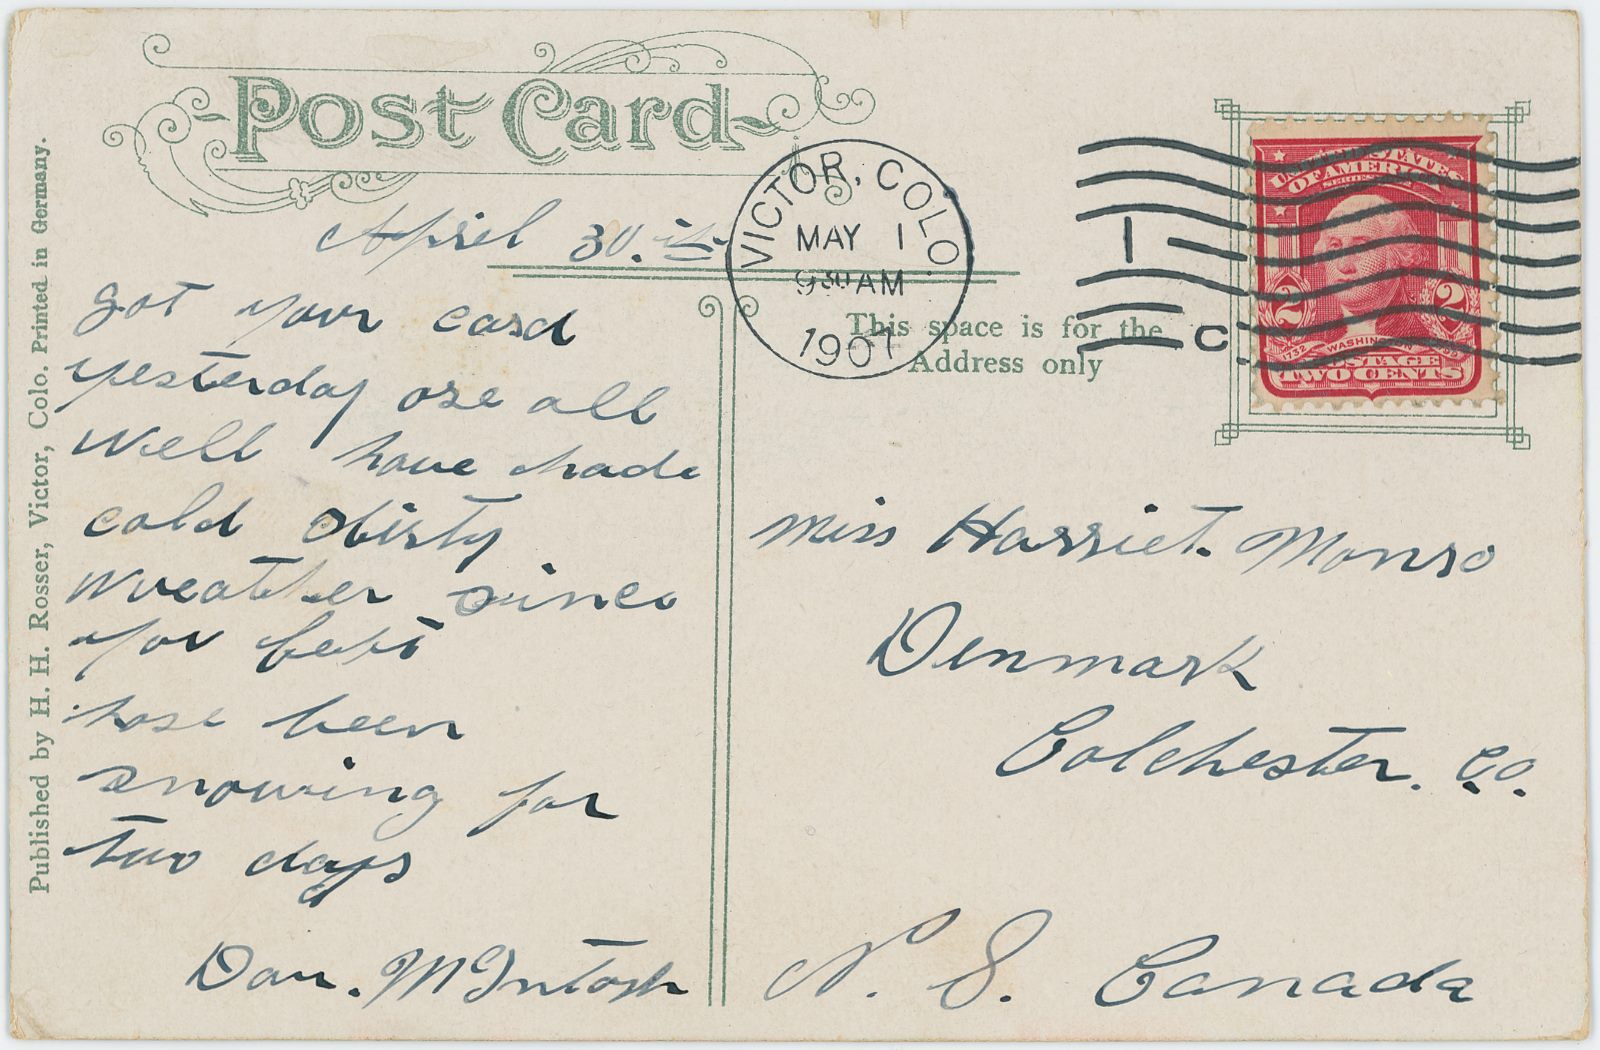 Post Card
April 30.th
VICTOR, COLO.
MAY 1
9 30 AM
1907
1
C
UNITED STATES
OF AMERICA
SERIES 1902
2 2
1732 WASHINGTON 1799
POSTAGE
TWO CENTS
This space is for the
Address only
got your card
yesterday are all
well have had
cold dirty
weather since
you left
hase been
snowing for
two days
Dan. McIntosh
Miss Harriet. Monro
Denmark
Colchester. Co.
N. S. Canada
Published by H. H. Rosser, Victor, Colo. Printed in Germany.